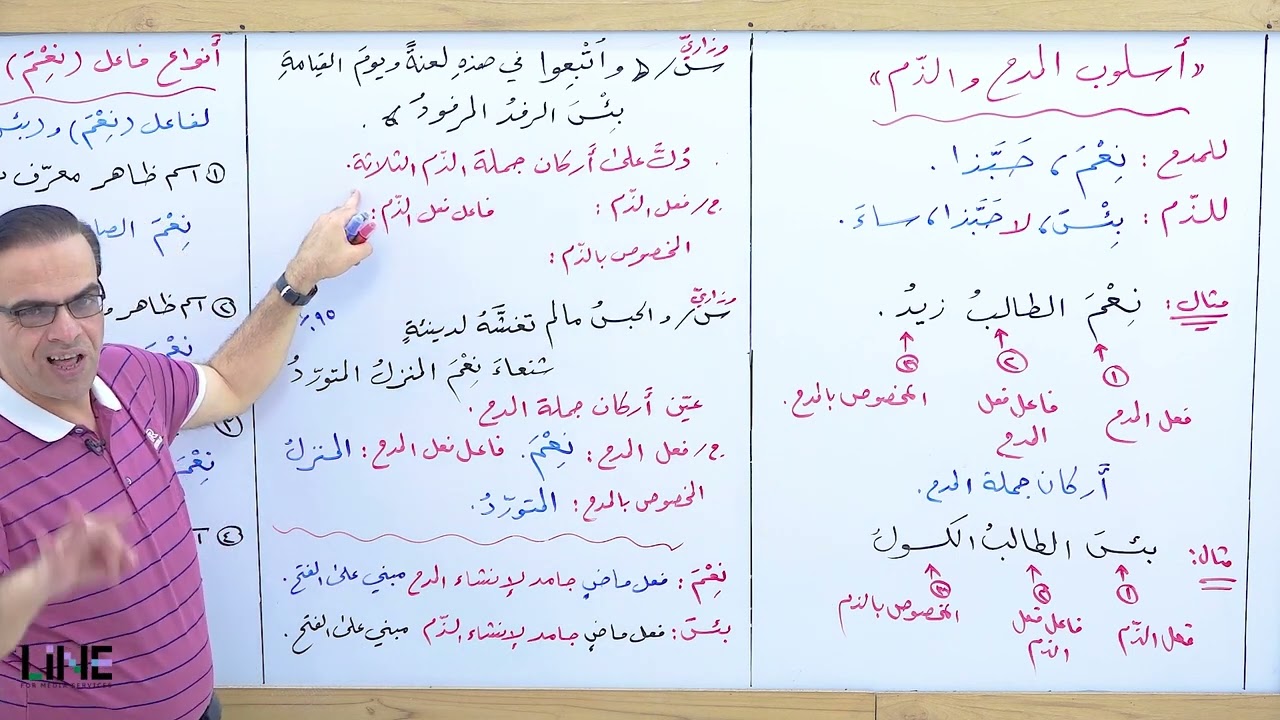 «أسلوب المدح والذّم»
للمدح: نِعْمَ، حَبَّذا.
للذّم: بِئْسَ، لا حَبَّذا، ساءَ.
مثال: نِعْمَ الطالبُ زيدُ.
١ ٢ ٣
فعل المدح فاعل فعل المدح المخصوص بالمدح.
أركان جملة المدح.
مثال: بئسَ الطالبُ الكسولُ
١ ٢ ٣
فعل الذّم فاعل فعل الذّم المخصوص بالذم
وزاريّ
س/ «وأُتْبِعوا في هذهِ لعنةً ويومَ القيامةِ
بِئْسَ الرفدُ المرفودُ».
دُلَّ على أركان جملة الذّم الثلاثة.
ج/ فعل الذّم: فاعل فعل الذّم:
المخصوص بالذّم:
وزاريّ
س/ والحبسُ مالم تغشَهُ لدينئةٍ
شنعاءَ نِعْمَ المنزلُ المتورّدُ
عيّن أركان جملة المدح.
ج/ فعل المدح: نِعْمَ. فاعل فعل المدح: المنزلُ
المخصوص بالمدح: المتورّدُ.
نِعْمَ: فعل ماضٍ جامد لإنشاء المدح مبني على الفتح.
بئسَ: فعل ماضٍ جامد لإنشاء الذّم مبني على الفتح.
أنواع فاعل (نِعْمَ)
لفاعل (نِعْمَ) و(بئس
١ اسم ظاهر معرّف
نِعْمَ
٢ اسم ظاهر
نِعْمَ
٣
نِعْمَ
٤
LINE
FOR MEDIA SERVICES